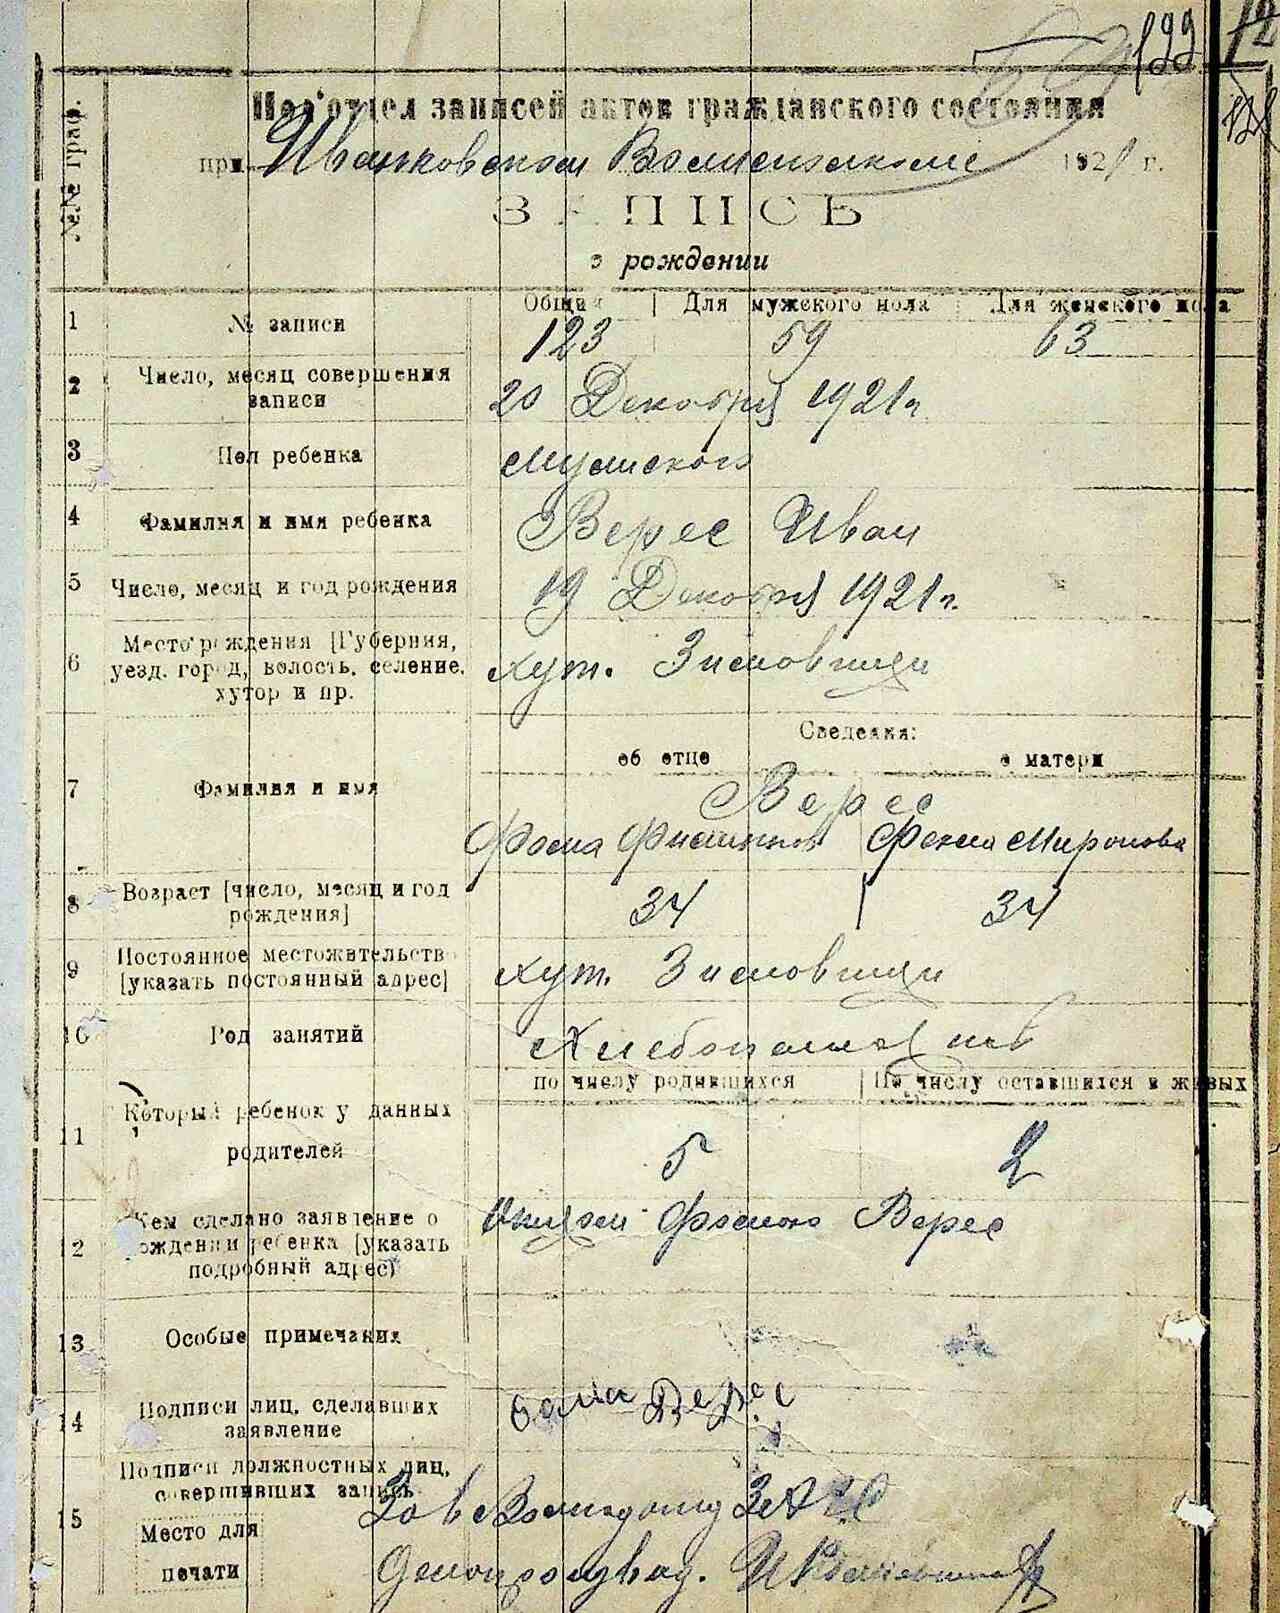 199 12
Под'отдел записей актов гражданского состояния
№№ граф.
при Иванковском Волисполкоме 1921 г.
ЗАПИСЬ
о рождении
Общий Для мужского пола Для женского пола
1 № записи 123 59 63
2 Число, месяц совершения
записи 20 Декабря 1921 г.
3 Пол ребенка мужского
4 Фамилия и имя ребенка Верес Иван
5 Число, месяц и год рождения 19 Декабря 1921 г.
Место рождения [Губерния,
6 уезд. город, волость, селение,
хутор и пр. хут.
Сведения:
об отце о матери
7 Фамилия и имя Верес
Фома Фекла Миронова
8 Возраст [число, месяц и год
рождения] 34 34
9 Постоянное местожительств
[указать постоянный адрес] хут.
10 Род занятий
по числу родившихся По числу оставшихся в живых
11 Который ребенок у данных
родителей 5 2
Кем сделано заявление о Отцом Фомою Верес
12 рождении ребенка [указать
подробный адрес)
13 Особые примечания
14 Подписи лиц, сделавших
заявление Фома Верес
Подписи должностных лиц,
совершивших запись
15 Место для
печати Делопроизвод.